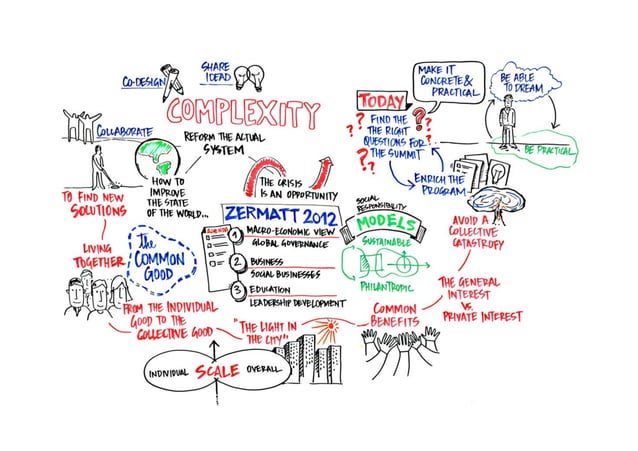 SHARE
IDEAD
CO-DESIGN
COMPLEXITY
COLLABORATE
REFORM THE ACTUAL
SYSTEM
HOW TO
IMPROVE
THE STATE
OF THE WORLD...
THE CRISIS
IS AN OPPORTUNITY
TO FIND NEW
SOLUTIONS
LIVING
TOGETHER
the
COMMON
GOOD
FROM THE INDIVIDUAL
GOOD TO THE
COLLECTIVE GOOD
"THE LIGHT IN
THE CITY"
INDIVIDUAL SCALE OVERALL
ZERMATT 2012
AGENDA
1 MACRO-ECONOMIC VIEW
GLOBAL GOVERNANCE
2 BUSINESS
SOCIAL BUSINESSES
3 EDUCATION
LEADERSHIP DEVELOPMENT
SOCIAL
RESPONSIBILITY
MODELS
SUSTAINABLE
PHILANTROPIC
COMMON
BENEFITS
TODAY
? FIND THE ?
? ? THE RIGHT ? ?
QUESTIONS FOR ?
? THE SUMMIT
?
MAKE IT
CONCRETE &
PRACTICAL
BE ABLE
TO DREAM
BE PRACTICAL
ENRICH THE
PROGRAM
AVOID A
COLLECTIVE
CATASTROFY
THE GENERAL
INTEREST
VS.
PRIVATE INTEREST